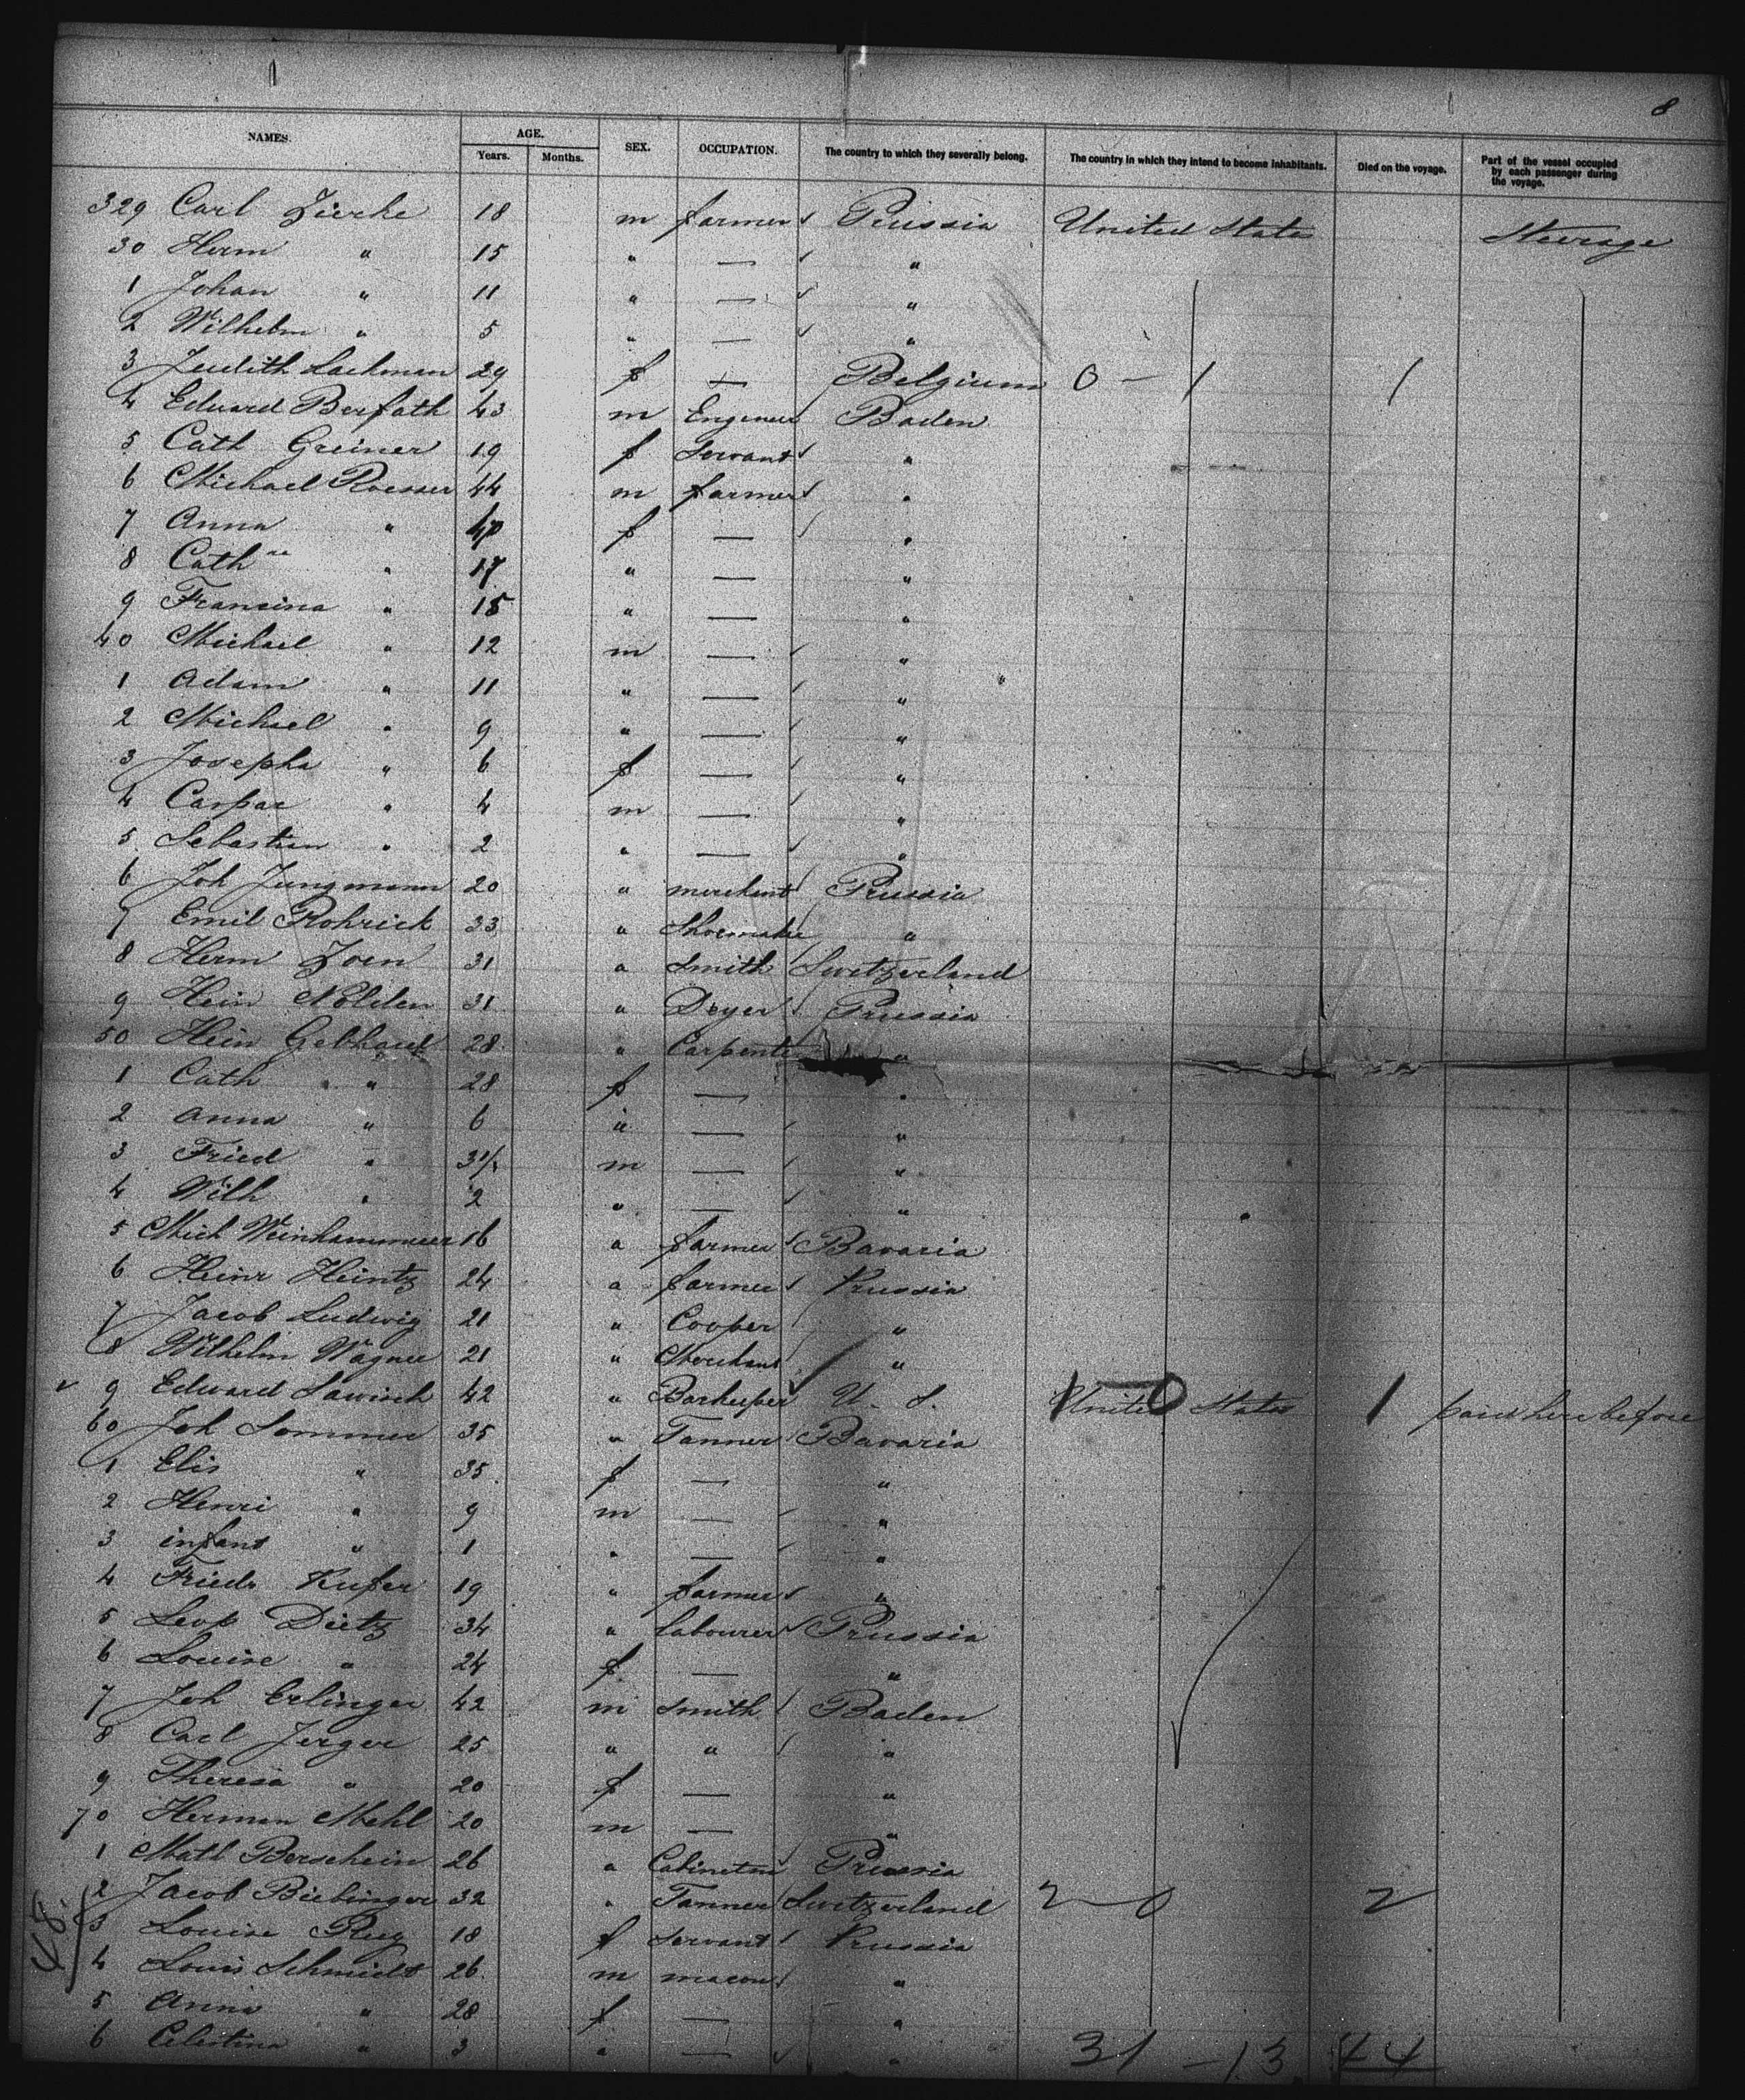 8
NAMES. AGE. Years. Months. SEX. OCCUPATION. The country to which they severally belong. The country in which they intend to become inhabitants. Died on the voyage. Part of the vessel occupied by each passenger during the voyage.
329 Carl Zierke 18 m farmer Prussia United States Steerage
30 Herm " 15 " — "
1 Johan " 11 " — "
2 Wilhelm " 5 " — "
3 Judith Lackman 29 f — Belgium 0 - 1 1
4 Eduard Berfath 43 m Engineer Baden
5 Cath Greiner 19 f Servant "
6 Michael Roesser 44 m farmer "
7 Anna " f — "
8 Cath " 17 " — "
9 Francina " 15 " — "
40 Michael " 12 m — "
1 Adam " 11 " — "
2 Michael " 9 " — "
3 Josepha " 6 f — "
4 Caspar " 4 m — "
5 Sebastien " 2 " — "
6 Joh Jungmann 20 " merchant Prussia
7 Emil Rohrick 33 " Shoemaker "
8 Herm Zoen 31 " Smith Switzerland
9 Hein Nolden 31 " Deyer Prussia
50 Hein Gebhard 28 " Carpenter "
1 Cath " 28 f — "
2 Anna " 6 " — "
3 Fried " m — "
4 Wilh " 2 " — "
5 Mich Weinhammer 16 " farmer Bavaria
6 Heinr Heintz 24 " farmer Prussia
7 Jacob Ludwig 21 " Cooper "
8 Wilhelm Wagner 21 " Merchant "
9 Edward Lawisch 42 " Barkeeper U. S. 1 - 0 United States 1 paid here before
60 Joh Sommer 35 " Tanner Bavaria
1 Elis " 35 f — "
2 Henri " 9 m — "
3 infant " 1 " — "
4 Friedr Kufer 19 " farmer "
5 Leop Dietz 34 " Labourer Prussia
6 Louise " 24 f — "
7 Joh Erlinger 42 m Smith Baden
8 Carl Jerger 25 " " "
9 Theresa " 20 f — "
70 Herman Mehl 20 m — "
1 Math Berschein 26 " Prussia
2 Jacob Biebinger 32 " Tanner Switzerland 2 - 0 2
3 Louise Rug 18 f Servant Prussia
4 Louis Schmidt 26 m mason "
5 Anna " 28 f — "
6 Celestina " 3 " — "
48.
31 - 13 44